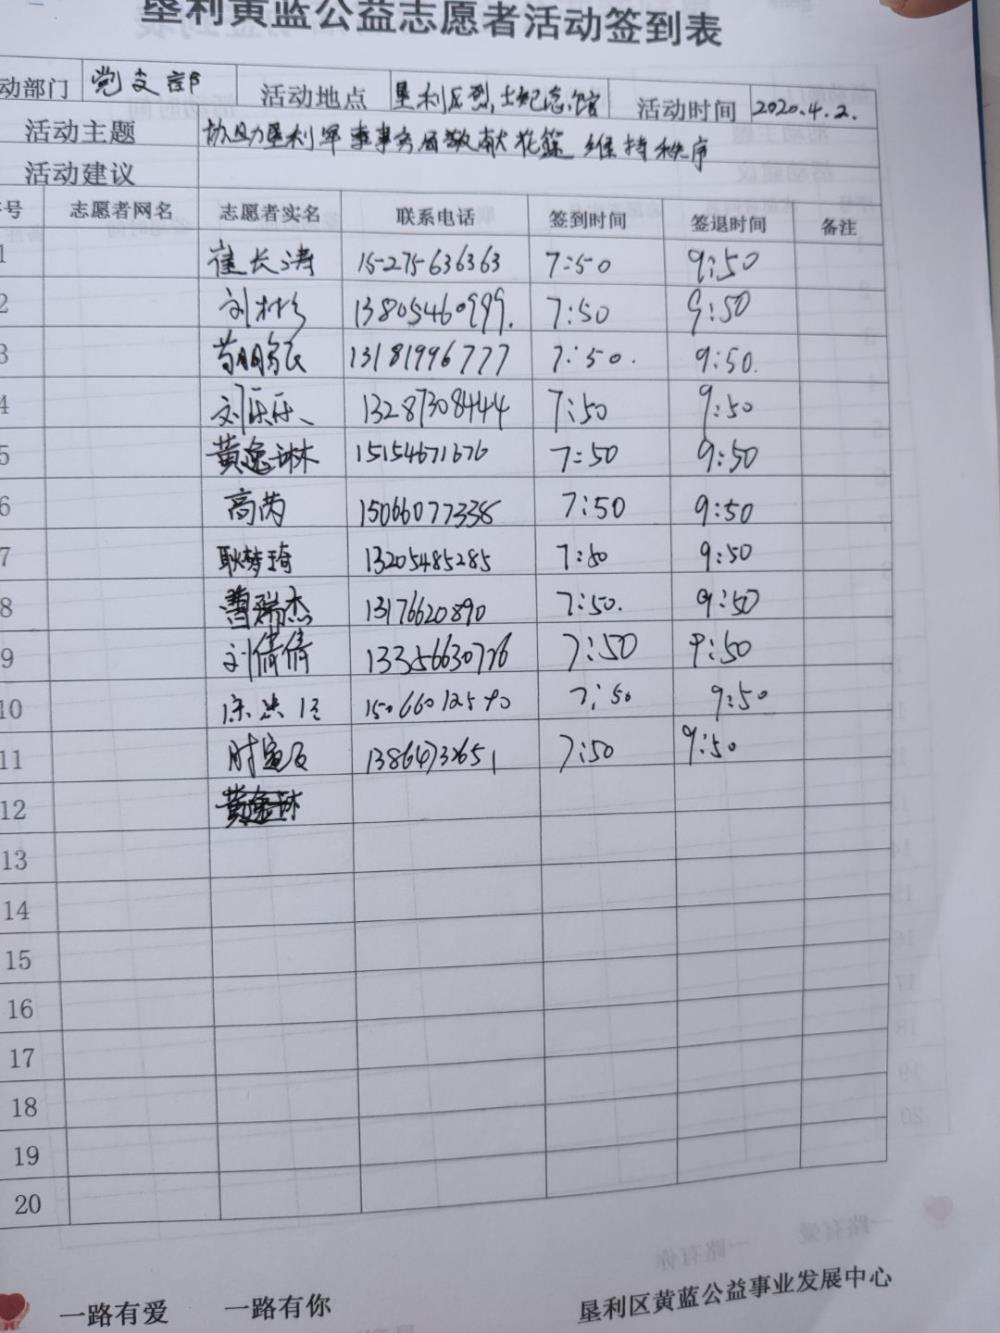 垦利黄蓝公益志愿者活动签到表
动部门 党支部 活动地点 垦利区烈士纪念馆 活动时间 2020.4.2.
活动主题 协助垦利军事事务局敬献花篮 维持秩序
活动建议
序号 志愿者网名 志愿者实名 联系电话 签到时间 签退时间 备注
1 崔长涛 15275636363 7:50 9:50
2 刘彬彬 13805460999. 7:50 9:50
3 13181996777 7:50. 9:50.
4 刘乐乐 13287308444 7:50 9:50
5 黄逸琳 15154671676 7:50 9:50
6 高芮 15066077338 7:50 9:50
7 耿梦琦 13205485285 7:50 9:50
8 曹瑞杰 13176620890 7:50. 9:50
9 刘倩倩 13356630776 7:50 9:50
10 15066012590 7:50 9:50
11 13864732651 7:50 9:50
12
13
14
15
16
17
18
19
20
一路有爱 一路有你 垦利区黄蓝公益事业发展中心